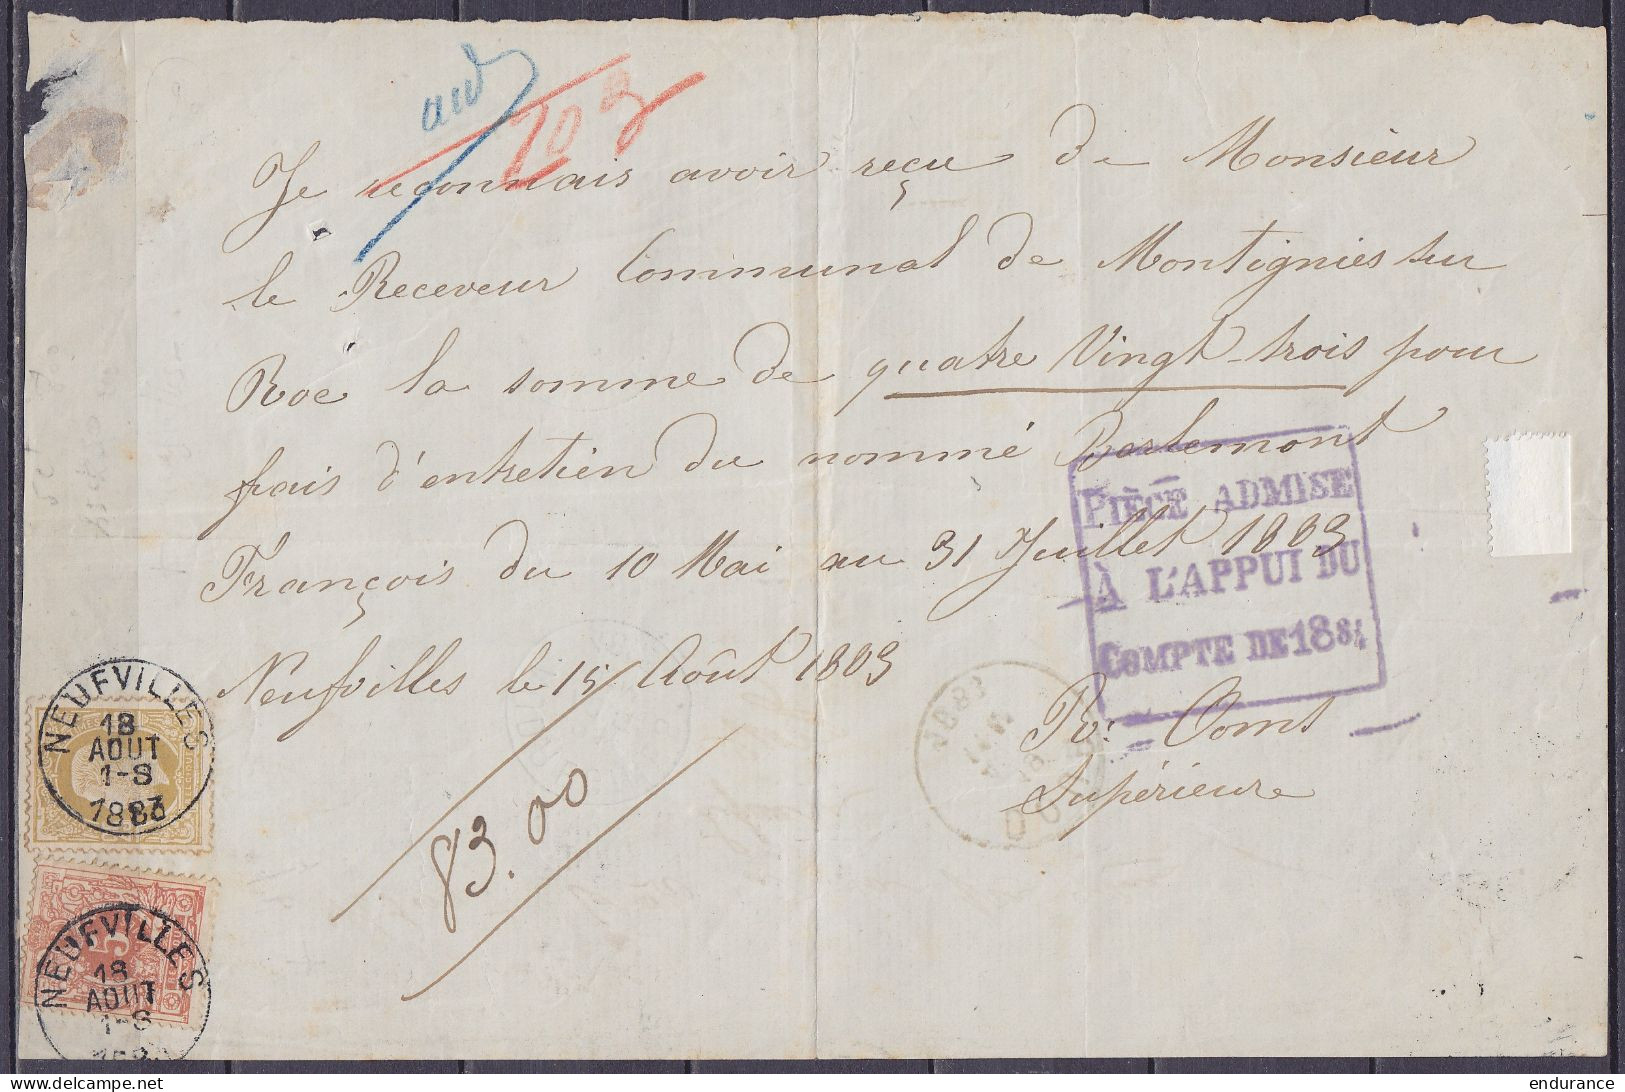 Je reconnais avoir reçu de Monsieur
le Receveur Communal de Montignies sur
Roc la somme de quatre Vingt-trois pour
frais d'entretien du nommé Bertemont
François du 10 Mai au 31 Juillet 1883
Neufvilles le 15 Août 1883
83.00
Supérieure
PIÈCE ADMISE
À L'APPUI DU
COMPTE DE 1884
NEUFVILLES
18
AOUT
1-S
1883
NEUFVILLES
18
AOUT
1-S
delcampe.net
endurance